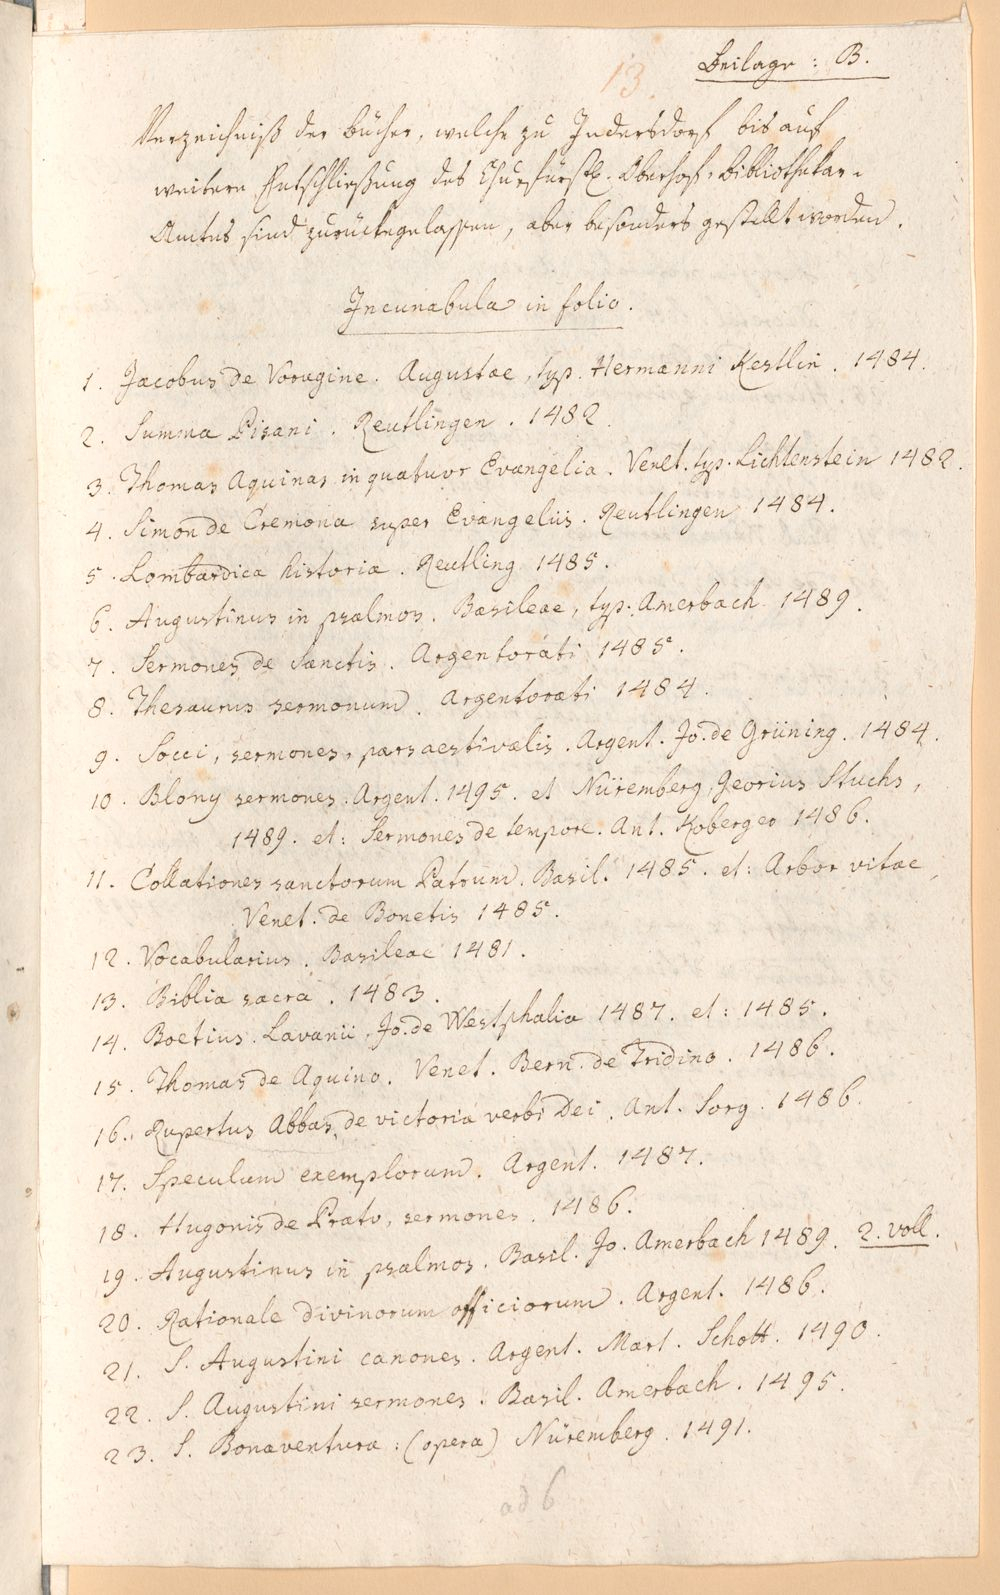 Beilage : B.
13.
Verzeichniß der Bücher, welche zu Indersdorf bis auf
weitere Entschließung des Churfürstl. Oberhof-Bibliothekar-
Amtes sind zurückgelassen, aber besonders gestellt worden.
Incunabula in folio.
1. Jacobus de Voragine. Augustae, typ. Hermanni Kestlin. 1484.
2. Summa Pisani. Reutlingen. 1482.
3. Thomas Aquinas in quatuor Evangelia. Venet. typ. Lichtenstein 1482.
4. Simon de Cremona super Evangeliis. Reutlingen 1484.
5. Lombardica historia. Reutling 1485.
6. Augustinus in psalmos. Basileae, typ. Amerbach. 1489.
7. Sermones de Sanctis. Argentorati 1485.
8. Thesaurus sermonum. Argentorati 1484.
9. Socci, sermones, pars aestivalis. Argent. Jo. de Grüning. 1484.
10. Blony sermones. Argent. 1495. et Nüremberg, Georius Stuchs,
1489. et: Sermones de tempore. Ant. Koberger 1486.
11. Collationes sanctorum Patrum. Basil. 1485. et: Arbor vitae,
Venet. de Bonetis 1485.
12. Vocabularius. Basileae 1481.
13. Biblia sacra. 1483.
14. Boetius. Lavanii, Jo. de Westphalia 1487. et: 1485.
15. Thomas de Aquino. Venet. Bern. de Tridino. 1486.
16. Rupertus Abbas, de victoria verbi Dei. Ant. Sorg. 1486.
17. Speculum exemplorum. Argent. 1487.
18. Hugonis de Prato, sermones. 1486.
19. Augustinus in psalmos. Basil. Jo. Amerbach 1489. 2. voll.
20. Rationale divinorum officiorum. Argent. 1486.
21. S. Augustini canones. Argent. Mart. Schott. 1490.
22. S. Augustini sermones. Basil. Amerbach. 1495.
23. S. Bonaventura: (opera) Nüremberg. 1491.
ad 6